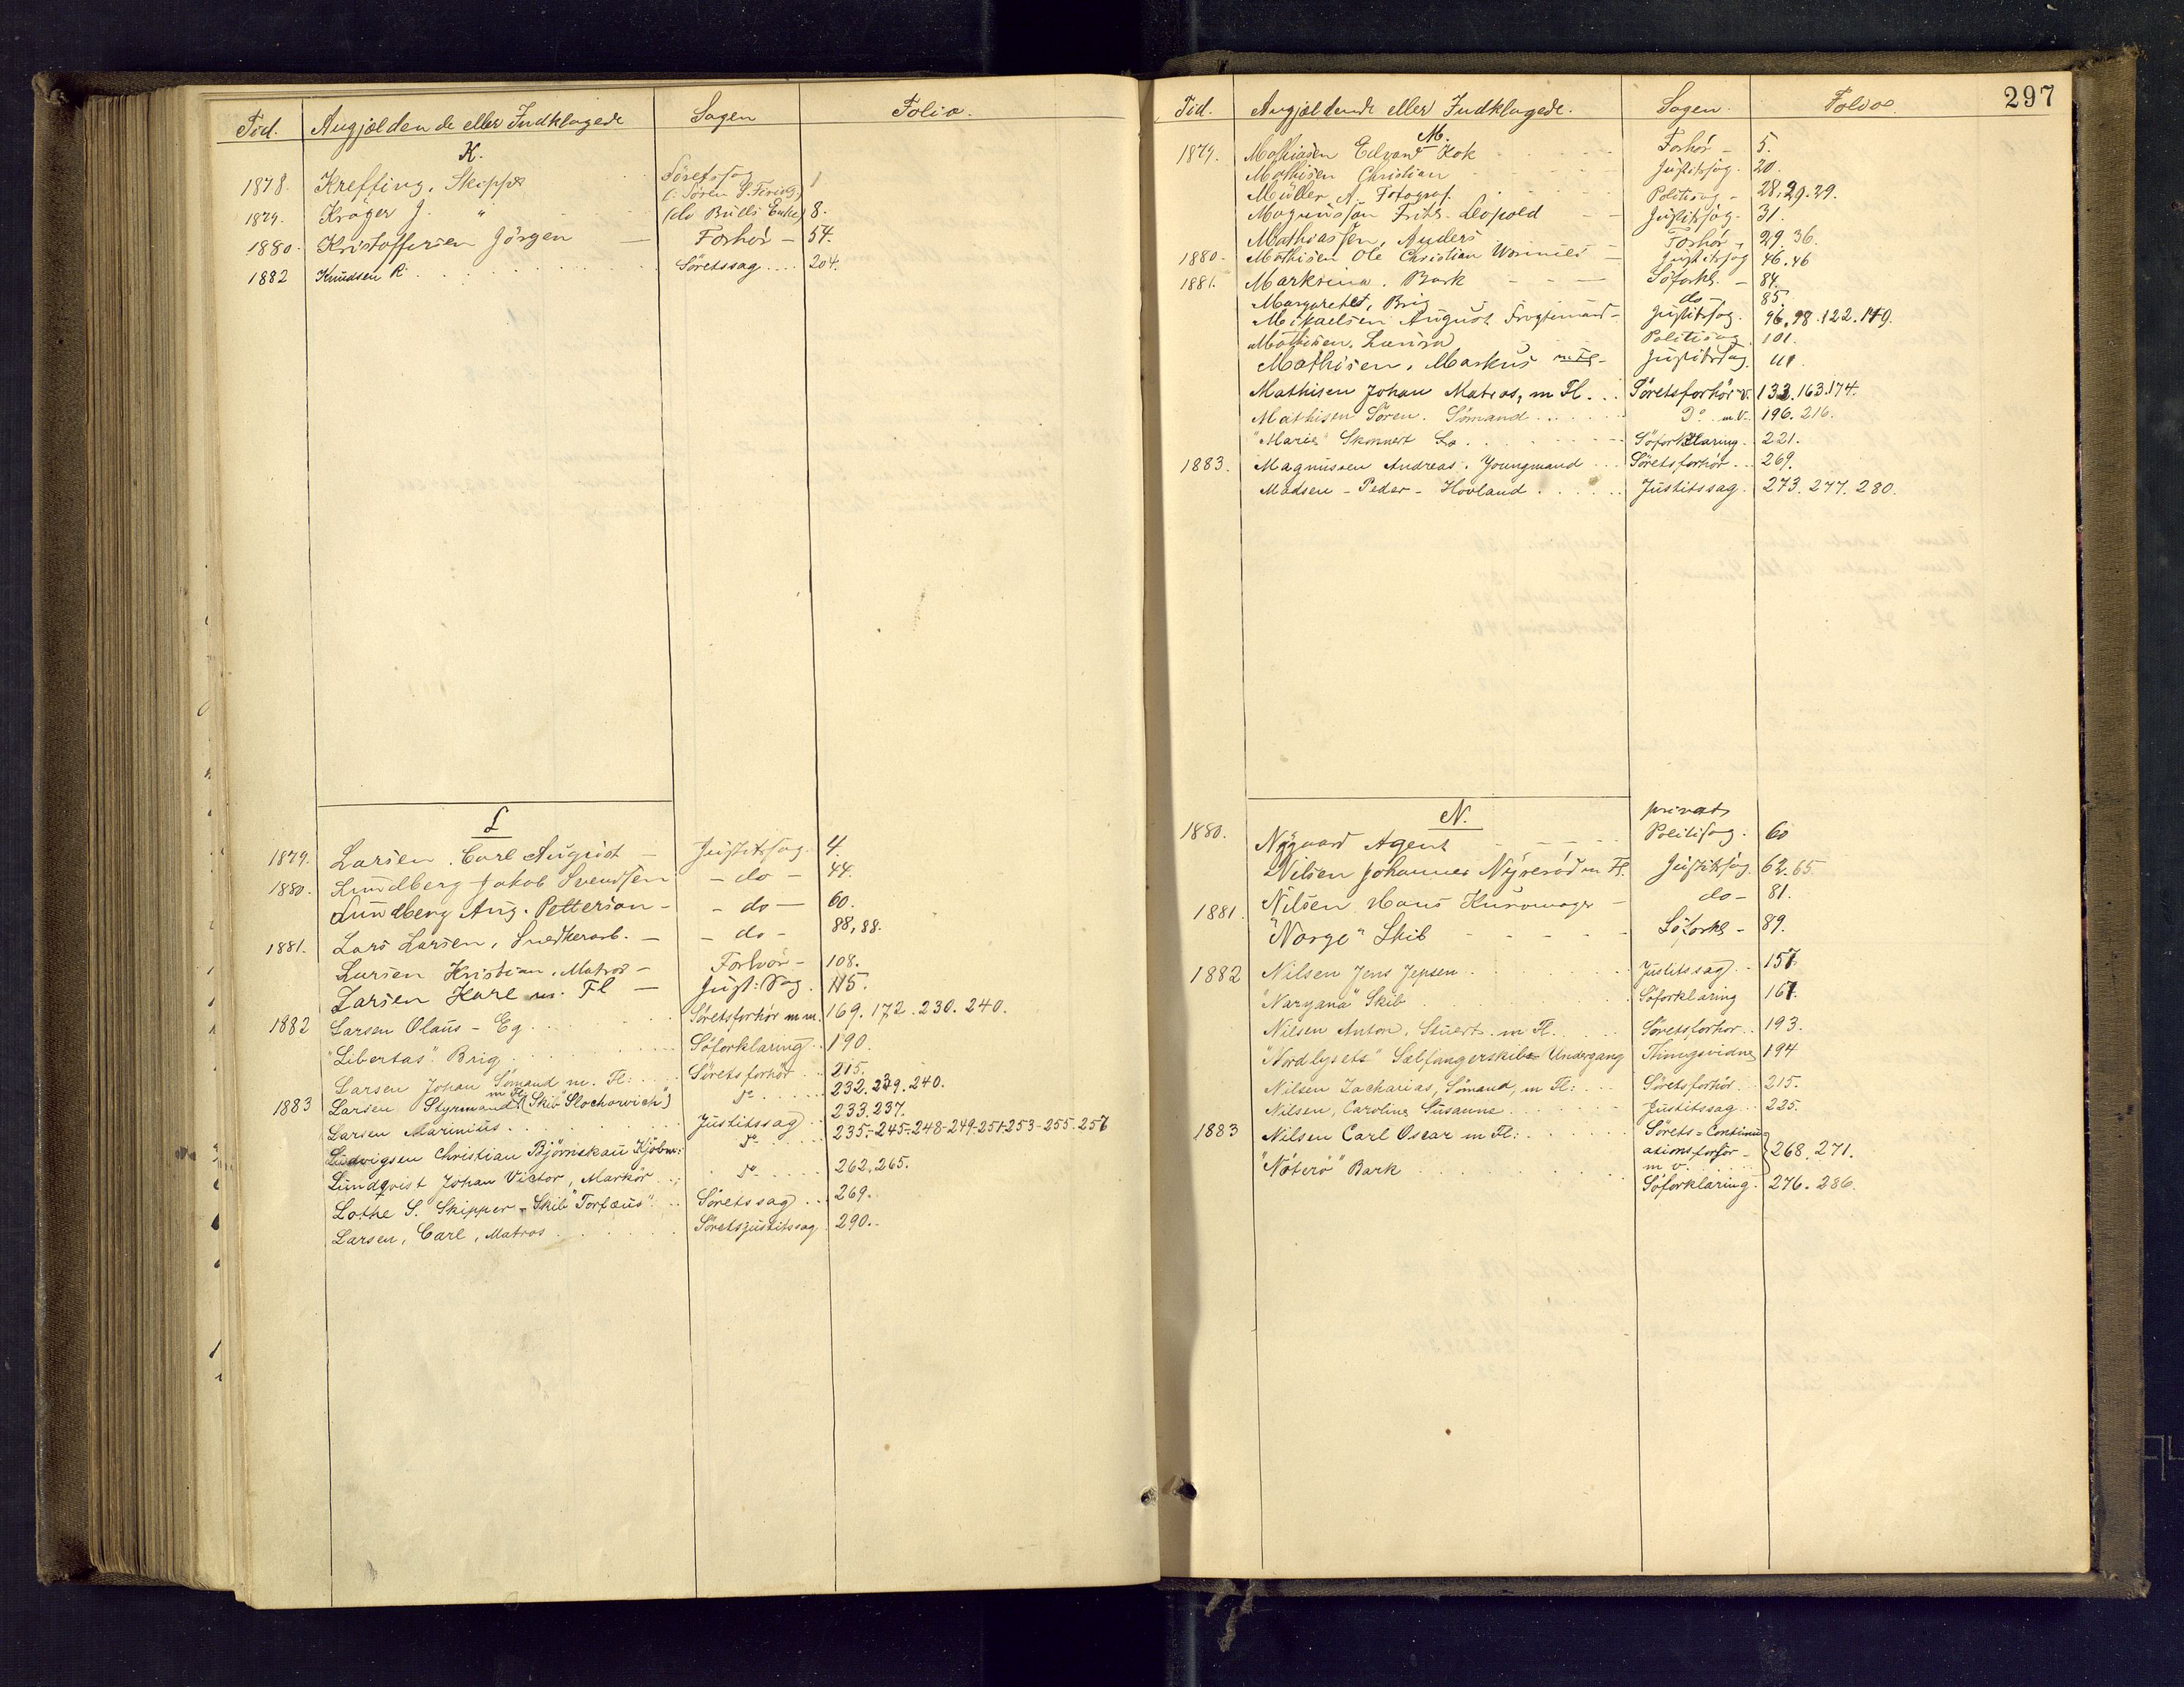 Tid. Angjældende eller Indklagede Sagen Folio.
K.
1878. Krefting, Skipper Söretssag 1
(: Sören
1879. Kröger J. " (do Bulls Enke) 8.
1880. Kristoffersen Jörgen — Forhör — 54.
1882 Knudsen R. Söretssag 204.
L
1879. Larsen, Carl August — Justitssag. 4.
1880. Lundberg Jakob Svendsen — do — 44.
Lundberg Aug. Petterson — — do — 60.
1881. Lars Larsen, Snedkerarb. — — do — 88, 88.
Larsen Kristian, Matros — Forhör — 108.
Larsen Karl m. Fl — Just: Sag. 115.
1882 Larsen Olaus – Eg Söretsforhör m m. 169. 172. 230. 240.
"Libertas" Brig Söforklaring 190.
Larsen Johan Sömand m. Fl: Söretsforhör 215.
1883 Larsen Styrmand m Fl (Skib "Slochorvich") do 232. 239. 240.
Larsen Marinius Justitssag 233. 237.
Ludvigsen Christian Björnskau Kjöbm: do 235.-245.-248-249-251-253-255. 257
Lundqvist Johan Victor, Markör do 262. 265.
Lothe S. Skipper – Skib "Torfæus" Söretssag 269.
Larsen, Carl, Matros Söretsjustitssag 290.
297
Tid. Angjældende eller Indklagede. Sagen. Folio
M.
1879. Mathiasen Edvard Kok Forhör – 5.
Mathisen Christian Justitssag. 20.
Müller A. Fotograf. Politisag – 28, 29. 29.
Magnussen Frits Leopold Justitssag. 31.
Mathiassen, Anders Forhör – 29. 36.
1880. Mathisen Ole Christian Justitssag 46. 46
1881. Marksina. Bark Söforkl. – 84.
Margarethe, Brig do — 85.
Mikaelsen August Justitssag. 96. 98. 122. 149.
Mathisen, Laura Politisag 101.
Mathisen, Markus m Fl – Justitssag 111.
Mathisen Johan Matros, m Fl. Söretsforhör v. 133. 163. 174.
Mathisen Sören. Sömand Do m V. 196. 216.
"Maria" Skonnert Söforklaring 221.
1883. Magnussen Andreas. Youngmand Söretsforhör 269.
Madsen – Peder – Hovland Justitssag. 273. 277. 280.
N.
privat
1880. Nygaard Agent Politisag. 60
Nilsen Johannes Nyreröd m Fl. Justitssag 62. 65
1881. Nilsen Hans Kurvmager — do — 81.
"Norge" Skib Söforkl – 89.
1882 Nilsen Jens Jepsen Justitssag 157.
"Naryana" Skib Söforklaring 167.
Nilsen Anton, Stuert. m Fl. Söretsforhör 193.
"Nordlysets" Sælfangerskibs Undergang Thingsvidne 194
Nilsen Zacharias, Sömand, m Fl: Söretsforhör 215.
Nilsen, Caroline Susanne Justitssag 225.
1883 Nilsen Carl Oscar m Fl: Sörets=Continu-
ationsforhör m v. 268. 271.
"Nöterö" Bark Söforklaring. 276. 286.